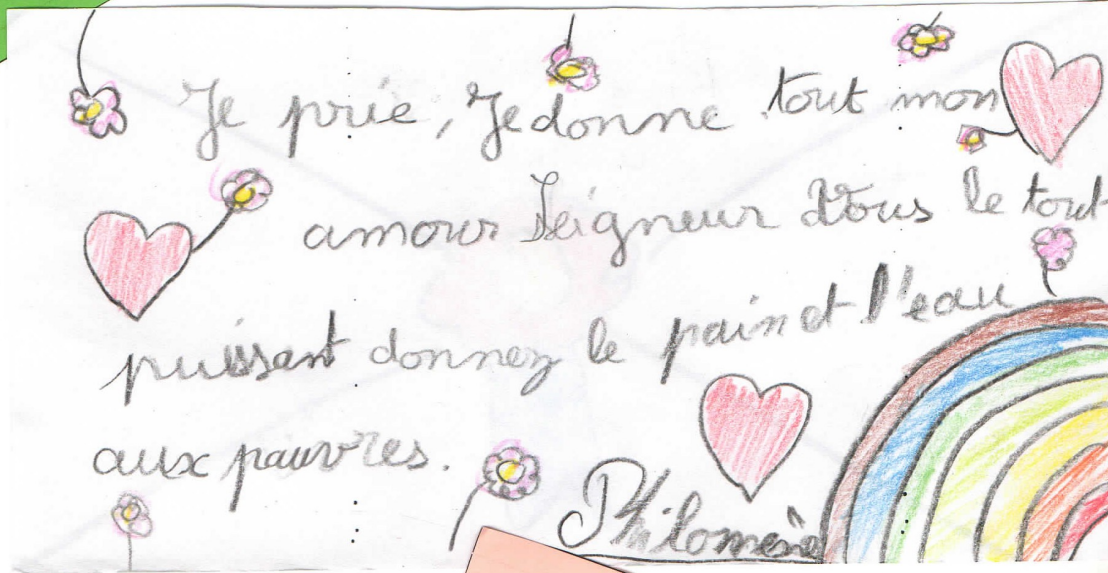 Je prie, Je donne tout mon
amour Seigneur Vous le tout-
puissant donnez le pain et l'eau
aux pauvres.
Philomène